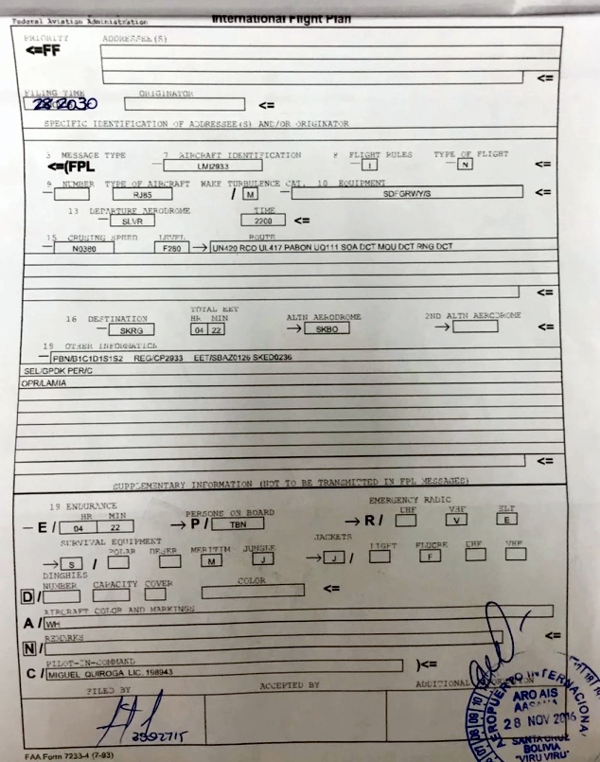 Federal Aviation Administration International Flight Plan
PRIORITY ADDRESSEE(S)
<=FF
<=
FILING TIME ORIGINATOR
28 2030 <=
SPECIFIC IDENTIFICATION OF ADDRESSEE(S) AND/OR ORIGINATOR
3 MESSAGE TYPE 7 AIRCRAFT IDENTIFICATION 8 FLIGHT RULES TYPE OF FLIGHT
<=(FPL — LMI2933 — I N <=
9 NUMBER TYPE OF AIRCRAFT WAKE TURBULENCE CAT. 10 EQUIPMENT
— RJ85 / M — SDFGRWY/S <=
13 DEPARTURE AERODROME TIME
— SLVR 2200 <=
15 CRUISING SPEED LEVEL ROUTE
— N0380 F280 → UN420 RCO UL417 PABON UQ111 SOA DCT MQU DCT RNG DCT
<=
TOTAL EET
16 DESTINATION HR MIN ALTN AERODROME 2ND ALTN AERODROME
— SKRG 04 22 → SKBO → <=
18 OTHER INFORMATION
— PBN/B1C1D1S1S2 REG/CP2933 EET/SBAZ0126 SKED0236
SEL/GPDK PER/C
OPR/LAMIA
<=
SUPPLEMENTARY INFORMATION (NOT TO BE TRANSMITTED IN FPL MESSAGES)
19 ENDURANCE EMERGENCY RADIO
HR MIN PERSONS ON BOARD UHF VHF ELT
— E / 04 22 → P / TBN → R / V E
SURVIVAL EQUIPMENT JACKETS
POLAR DESER MERITIM JUNGLE LIGHT FLUORE UHF VHF
→ S / M J → J / F
DINGHIES
NUMBER CAPACITY COVER COLOR
D / <=
AIRCRAFT COLOR AND MARKINGS
A / WH
REMARKS
N / <=
PILOT-IN-COMMAND
C / MIGUEL QUIROGA LIC. 198943 )<=
FILED BY ACCEPTED BY ADDITIONAL
3592715
AEROPUERTO INTERNACIONAL
ARO AIS
AASANA
28 NOV 2016
SANTA CRUZ
BOLIVIA
"VIRU VIRU"
FAA Form 7233-4 (7-93)